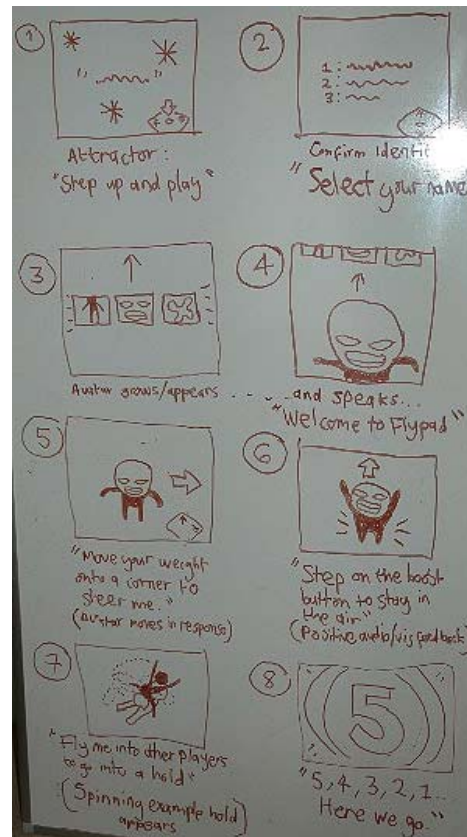 1
Attractor:
"Step up and play"
2
1:
2:
3:
Confirm Identit
"Select your name
3
Avatar grows/appears ......
4
...and speaks...
"Welcome to Flypad"
5
"Move your weight
onto a corner to
steer me."
(Avatar moves in response)
6
"Step on the boost
button to stay in
the air"
(Positive audio/vis feedback)
7
"Fly me into other players
to go into a hold"
(Spinning example hold
appears
8
5
"5, 4, 3, 2, 1..
Here we go."